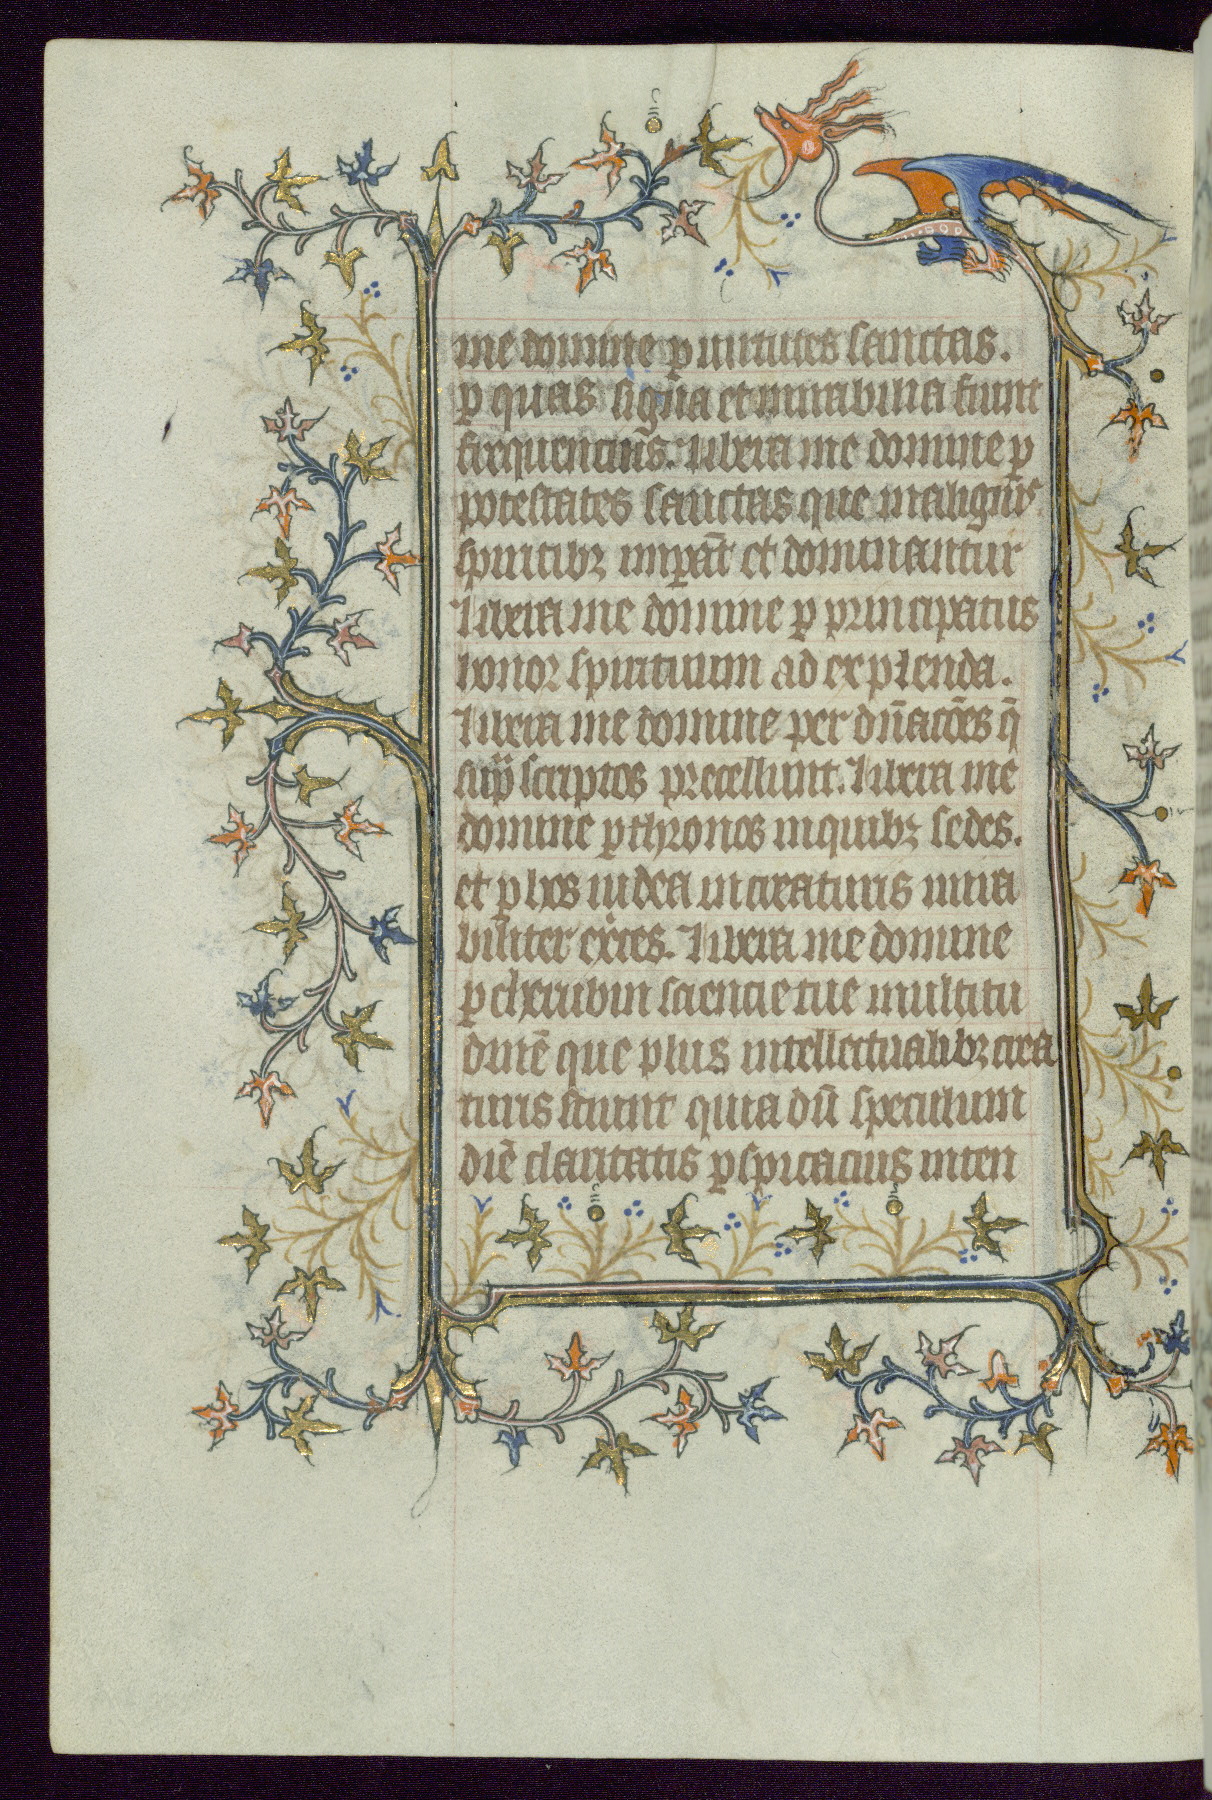 me domine p uirtutes sanctas.
p quas signa et mirabilia fiunt
frequencius. Libera me domine p
potestates sanctas que malignis
spiritibz imperāt et dominantur
Libera me domine p principatus
bonor spirituum ad explenda.
Libera me domine per dn̄acōēs q̄
sup̄ scriptos precellunt. Libera me
domine p thronos in quibz sedes.
et p hos iudicia in creaturis mira
biliter exerces. Libera me domine
p cherubin sciencie tue multitu
dinē que plus intellectualibz crea
turis sciunt quia dū speculum
diē claritatis pspicacius inten